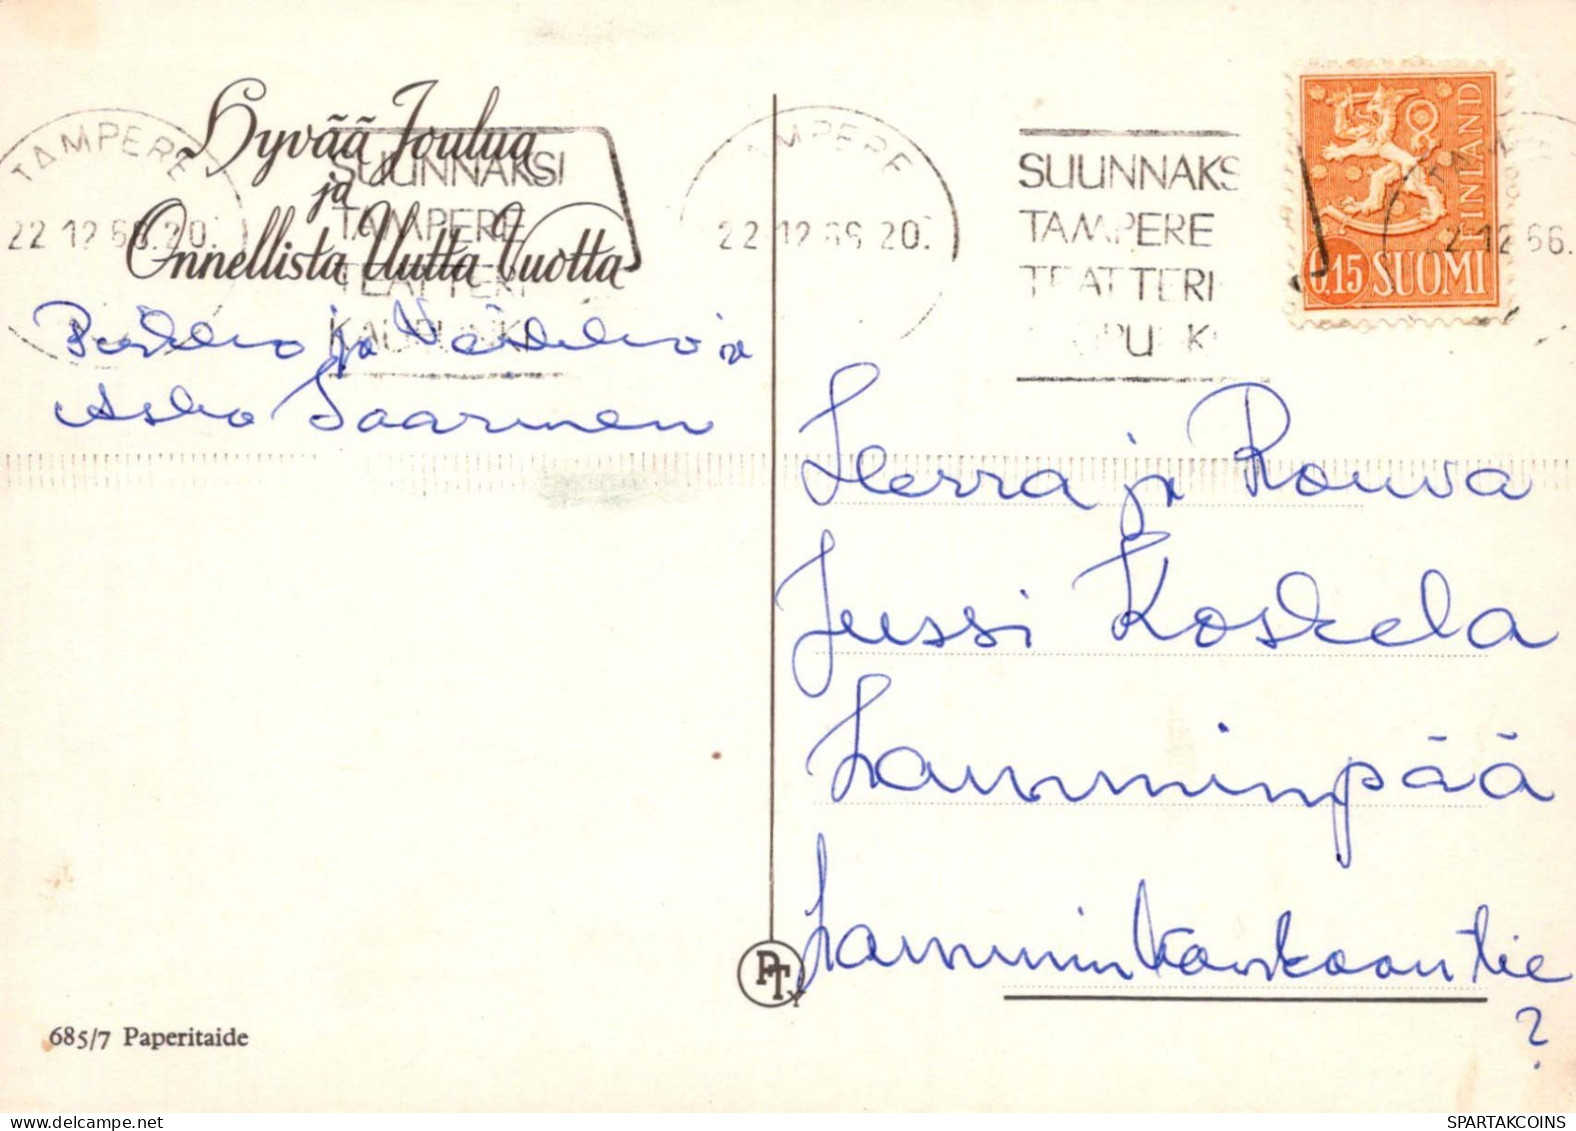 Hyvää Joulua
ja
Onnellista Uutta Vuotta
TAMPERE
22.12.66.20.
SUUNNAKSI
TAMPERE
TEATTERI
KAUPUNKI
Pirkko ja Veikko ja
Asko Saarinen
TAMPERE
22.12.66.20.
SUUNNAKS
TAMPERE
TEATTERI
FINLAND
0.15 SUOMI
22.12.66.
Herra ja Rouva
Jussi Koskela
Lamminpää
?
PT
685/7 Paperitaide
SPARTAKCOINS